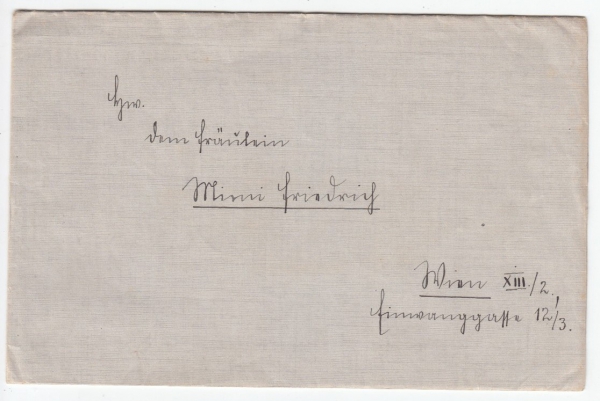 Hzw.
dem Fräulein
Mimi Friedrich
Wien XIII./2.,
Einwanggasse 12/3.